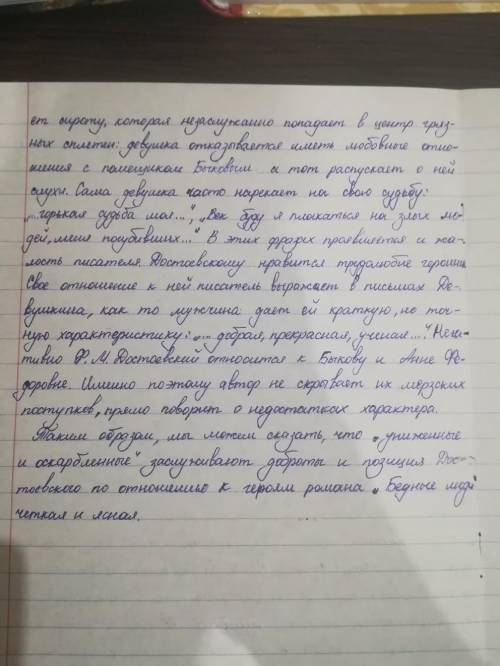 ет сироту, которая незаслуженно попадает в центр гряз-
ных сплетен: девушка отказывается иметь любовные отно-
шения с помещиком Быковым а тот распускает о ней
слухи. Сама девушка часто нарекает на свою судьбу:
„...горькая судьба моя...“, „Век буду я плакаться на злых лю-
дей, меня погубивших...“ В этих фразах проявляется и жа-
лость писателя. Достоевскому нравится трудолюбие героини
Свое отношение к ней писатель выражает в письмах Де-
вушкина, как то мужчина дает ей краткую, но точ-
ную характеристику: „... добрая, прекрасная, ученая...“. Нега-
тивно Ф. М. Достоевский относится к Быкову и Анне Фе-
доровне. Именно поэтому автор не скрывает их мерзских
поступков, прямо говорит о недостатках характера.
Таким образом, мы можем сказать, что „униженные
и оскарбленные“ заслуживают доброты и позиция Дос-
тоевского по отношению к героям романа „Бедные люди
четкая и ясная.